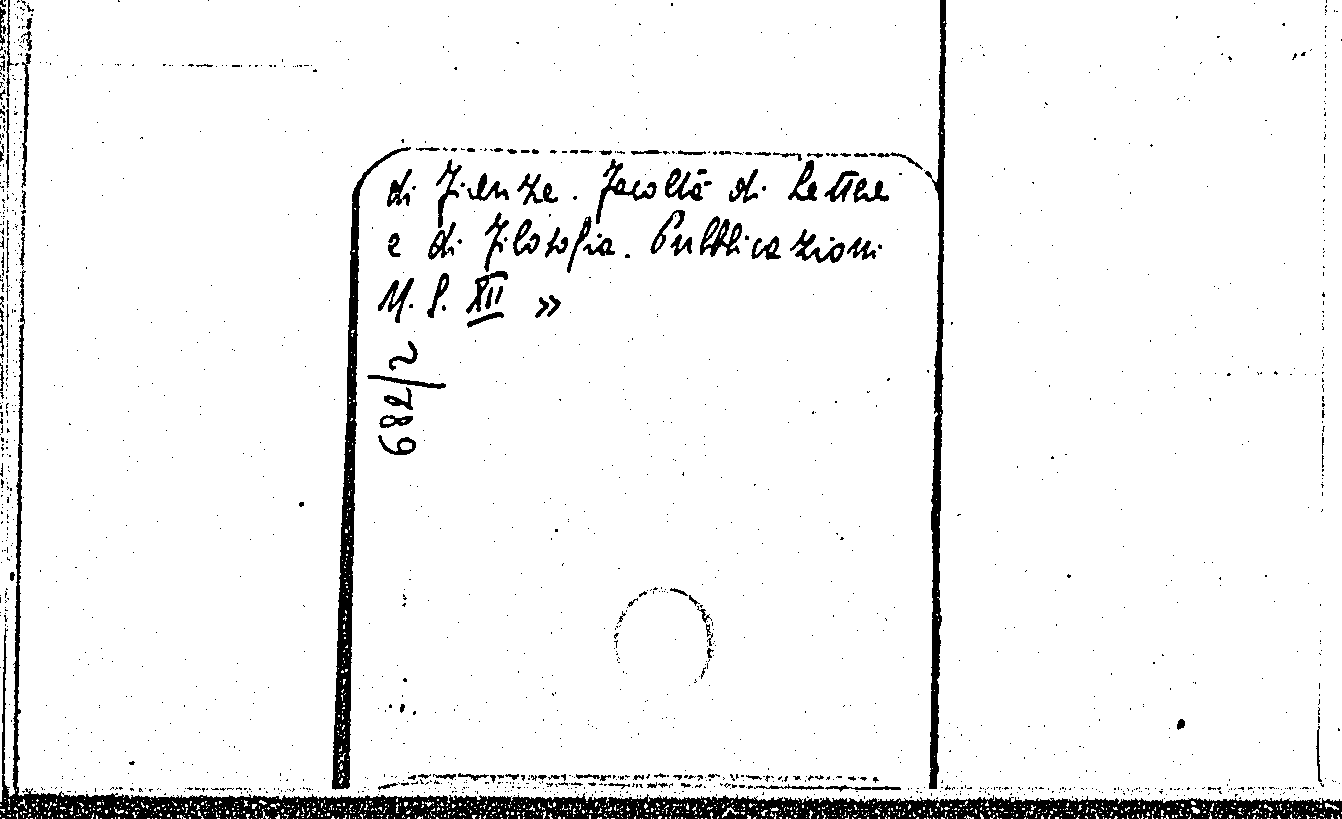 di Firenze. Facoltà di Lettere
e di Filosofia. Pubblicazioni
N. S. XII »
682/2